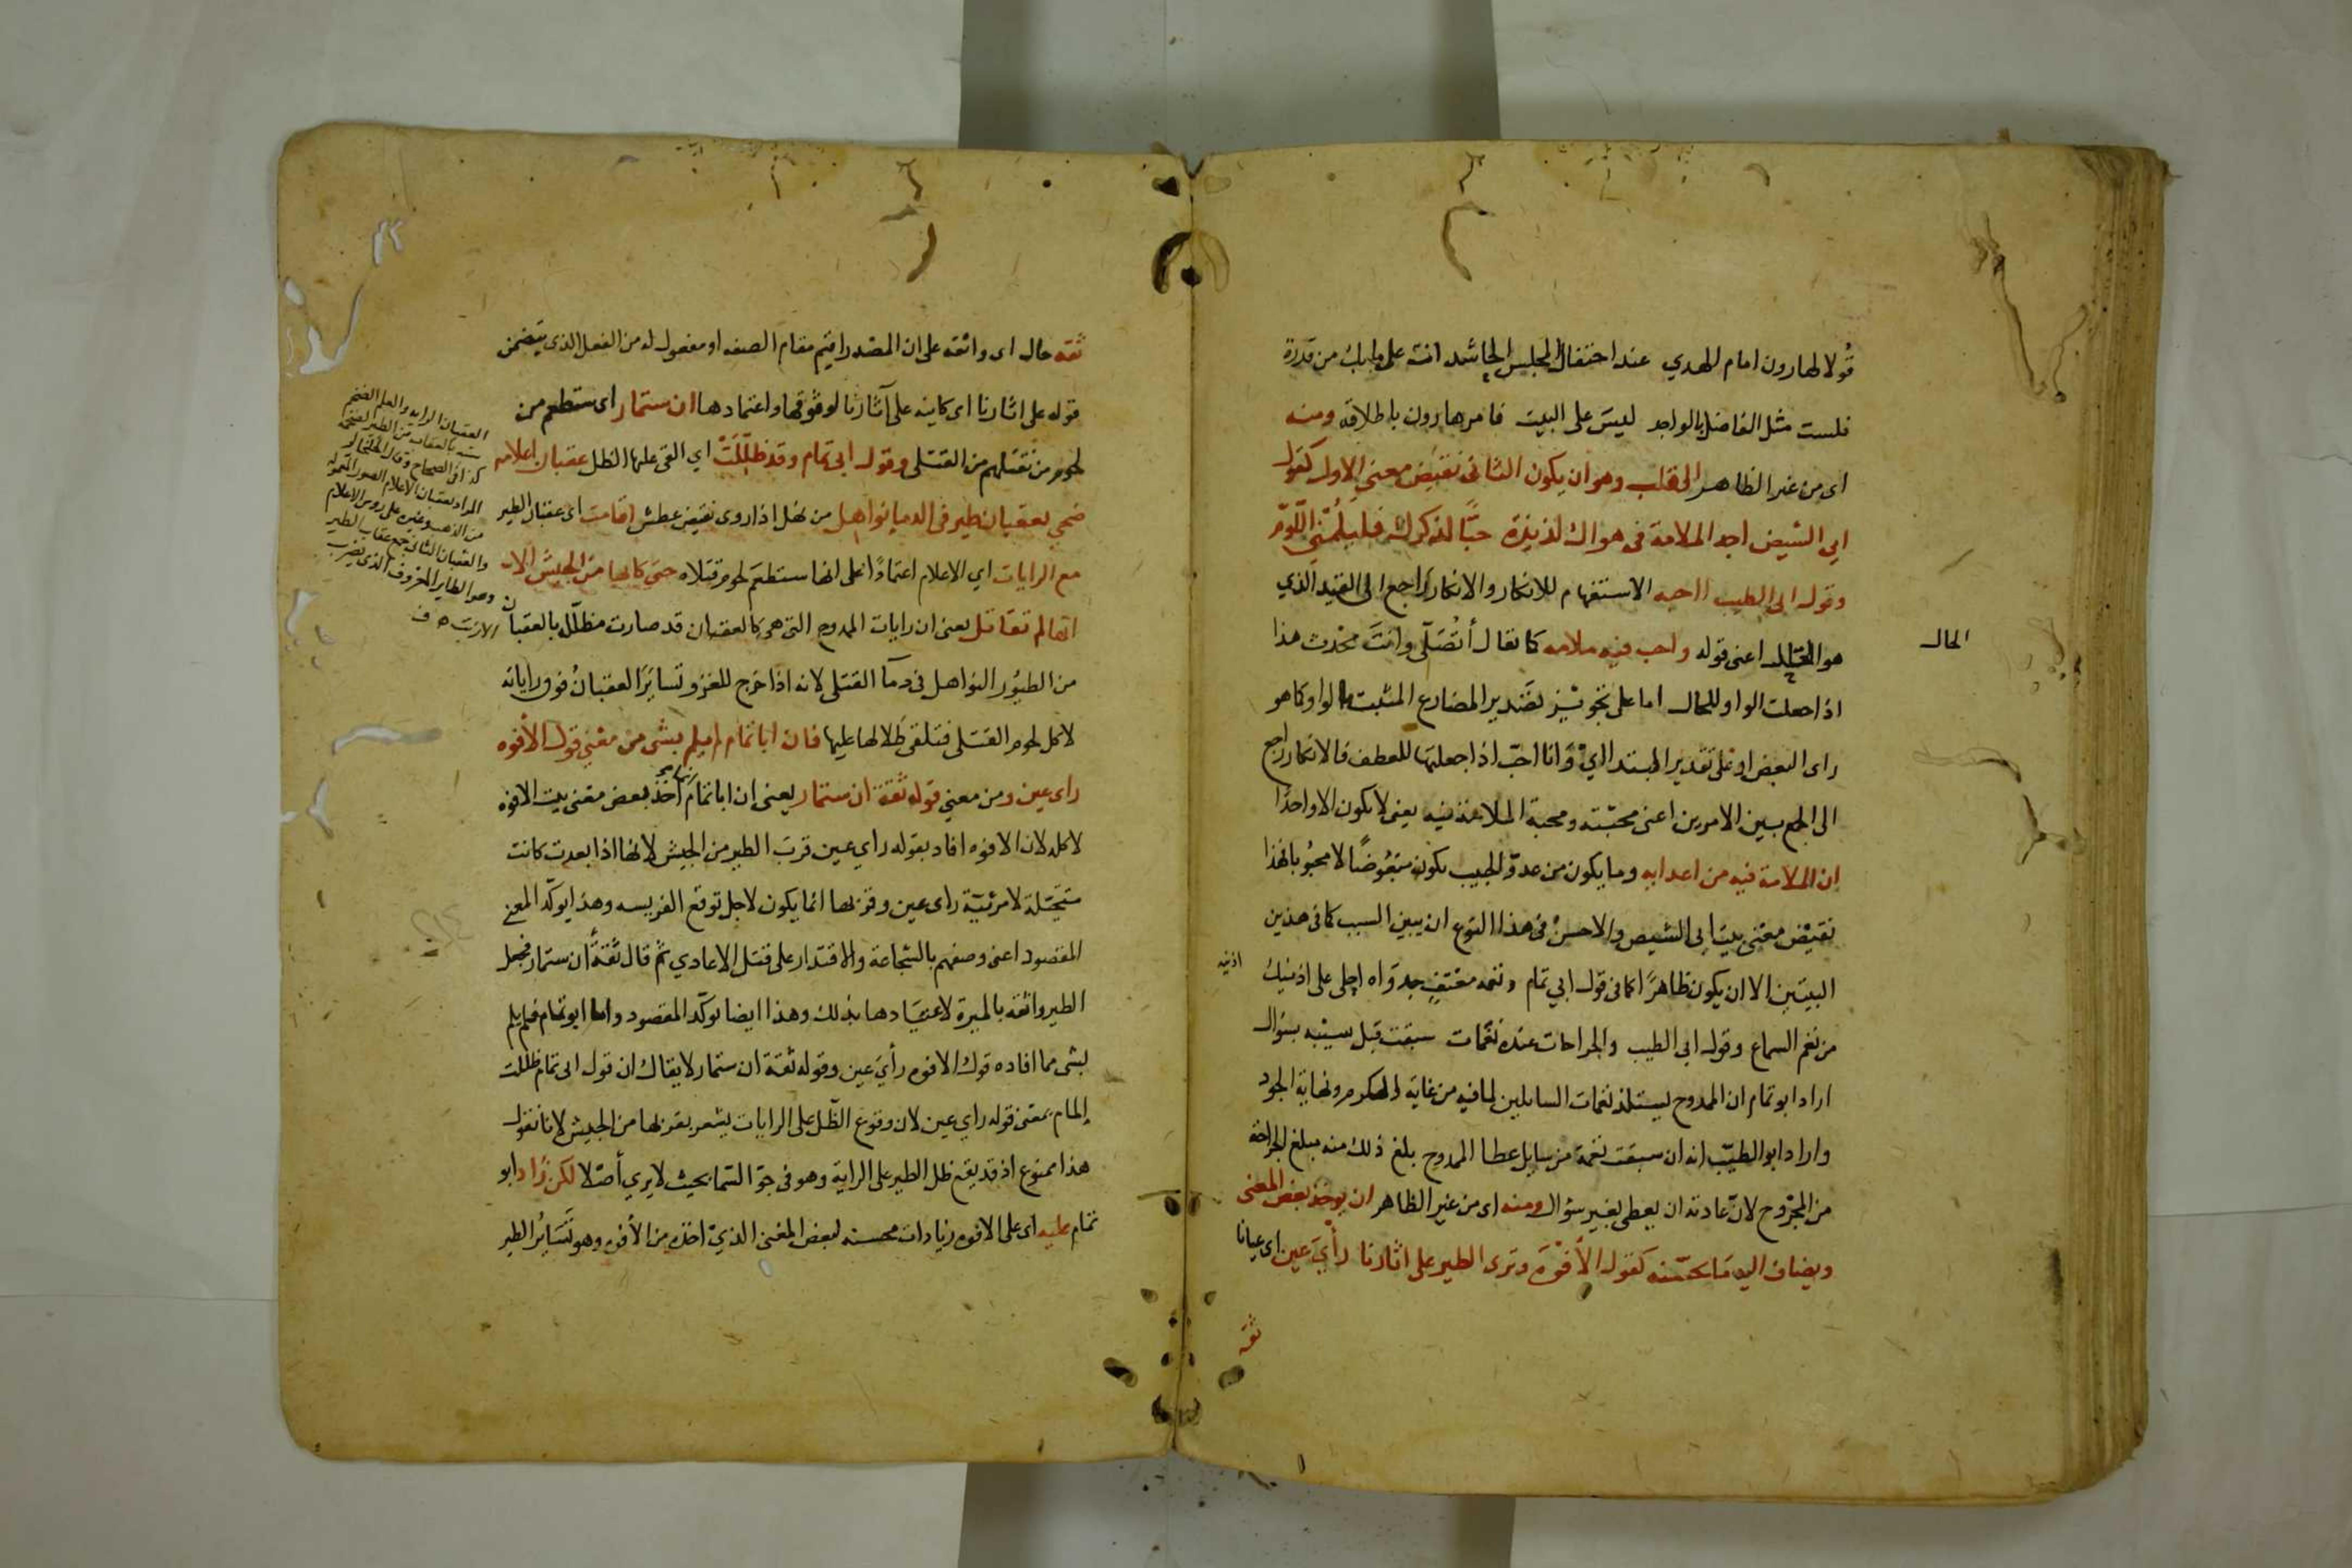 قُولا لهارون امام الهدي عند احتفال المجلس الحاشد انت على ما بك من قدرة
فلست مثل الفاضل بالواجد ليس على البيت فامر هارون باطلاقه ومنه
اى من غير الظاهر القلب وهو ان يكون الثانى نقيض معنى الاول كقول
ابي الشيص اجد الملامة فى هواك لذيذة حبًّا لذكرك فليلُمنى اللُّوَّم
وقول ابى الطيب ااحبه الاستفهام للانكار والانكار راجع الى القيد الذي
هو الحال اعنى قوله واحب فيه ملامه كما يقال أتُصَلّى وانتَ محدث هذا
الحال
اذا جعلت الواو للحال اما على تجويز تصدير المضارع المثبت بالواو كما هو
راى البعض او على تقدير المبتدا ايْ وَانا احبّ اذا جعلتها للعطف فالانكار راجع
الى الجمع بين الامرين اعنى محبّته ومحبة الملامة فيه يعنى لا يكون الا واحدًا
ان الملامة فيه من اعدايه وما يكون من عدوّ الحبيب يكون مبغوضًا لا محبوبا فهذا
نقيض معنى بيت ابى الشيص والاحسن فى هذا النوع ان يبين السبب كما فى هذين
البيتين الا ان يكون ظاهرًا كما فى قول ابي تمام ونغمه معتفٍ جدواه احلى على اذنيك
اذنيه
من نغم السماع وقول ابى الطيب والجراحات عنده نغمات سبقت قبل سيبه بسؤال
اراد ابو تمام ان الممدوح يستلذ نغمات السايلين لما فيه من غاية الكرم ونهاية الجود
واراد ابو الطيّب انه ان سبقت نغمة من سايل عطا الممدوح بلغ ذلك منه مبلغ الجراحة
من المجروح لان عادته ان يعطى بغير سؤال ومنه اى من غير الظاهر ان يوخذ بعض المعنى
ويضاف اليه ما يحسّنه كقول الأفوَه وترى الطير على اثارنا رأيَ عين اى عيانا
ثقة
ثقة حال اى واثقة على ان المصدر اقيم مقام الصفه او مفعول له من الفعل الذى يتضمن
قوله على اثارنا اى كاينه على آثارنا لوثوقها واعتمادها ان ستمار اى ستطعم من
لحوم من نقتلهم من القتلى وقول ابى تمام وقد ظُلِّلَتْ اي القى عليها الظل عقبان اعلامه
ضحي بعقبان طير فى الدما نواهل من نهل اذا روى نقيض عطش اقامت اى عقبان الطير
مع الرايات اي الاعلام اعتمادًا على انها ستطعم لحوم قتلاه حتى كانها من الجيش الا
انها لم تقاتل يعنى ان رايات الممدوح التى هى كالعقبان قد صارت مظلّله بالعقبان
من الطيُور النواهل فى دمآ القتلى لانه اذا خرج للغزو تسايَرَ العقبانُ فوق راياته
لاكل لحوم القتلى فتلقى ظلالها عليها فان ابا تمام لم يلم بشى من معنى قول الأفوه
راى عين ومن معنى قوله ثقة ان ستمار يعنى ان ابا تمام اخذ بعض معنى بيت الافوه
لا كله لان الافوه افاد بقوله راي عين قرب الطير من الجيش لانها اذا بعدت كانت
متخيّلة لا مرئيّة راى عين وقربها انما يكون لاجل توقع الفريسه وهذا يوكّد المعنى
المقصود اعنى وصفهم بالشجاعة والاقتدار على قتل الاعادي ثم قال ثقةً ان ستمار فجعل
الطير واثقه بالميرة لاعتيادها بذلك وهذا ايضا يوكّد المقصود واما ابو تمام فلم يلم
بشى مما افاده قول الافوه رأيَ عين وقوله ثقة ان ستمار لا يقال ان قول ابى تمام ظللت
إلمام بمعنى قوله راي عين لان وقوع الظّل على الرايات يشعر بقربها من الجيش لانا نقول
هذا ممنوع اذ قد يقع ظل الطير على الراية وهو فى جوّ السّما بحيث لا يرى أصلا لكن زاد ابو
تمام عليه اى على الافوه زيادات محسنه لبعض المعنى الذىْ اخذه من الأفوه وهو تَسَايُر الطير
العقبان الرايه والعلم الضخم
شبه بالعقاب من الطير لضخمه
كذا فى الصحاح وقال الخلخالى
المراد بعقبان الاعلام الصور المعموله
من الذهب وغيره على روس الاعلام
والعقبان الثانى جمع عقاب الطير
وهو الطاير المعروف الذى يضرب